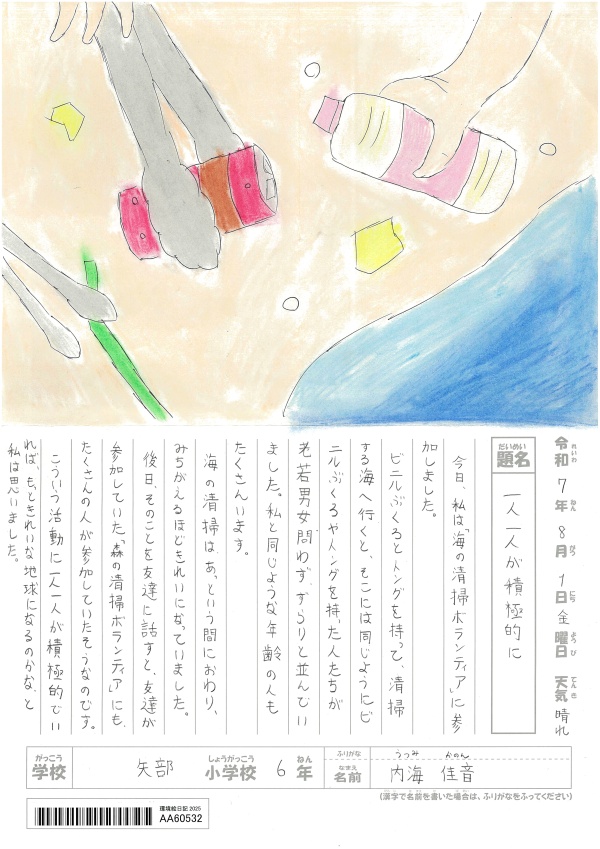 令和7年8月1日金曜日 天気 晴れ
れいわ ねん がつ にち ようび てんき
だいめい
題名
一人一人が積極的に
今日、私は「海の清掃ボランティア」に参
加しました。
ビニルぶくろとトングを持って、清掃
する海へ行くと、そこには同じようにビ
ニルぶくろやトングを持った人たちが
老若男女問わず、ずらりと並んでい
ました。私と同じような年齢の人も
たくさんいます。
海の清掃は、あっという間におわり、
みちがえるほどきれいになっていました。
後日、そのことを友達に話すと、友達が
参加していた「森の清掃ボランティア」にも、
たくさんの人が参加していたそうなのです。
こういう活動に一人一人が積極的でい
れば、もっときれいな地球になるのかな、と
私は思いました。
がっこう
学校
矢部
しょうがっこう
小学校
6
ねん
年
ふりがな
うつみ かのん
なまえ
名前
内海 佳音
(漢字で名前を書いた場合は、ふりがなをふってください)
環境絵日記 2025
AA60532